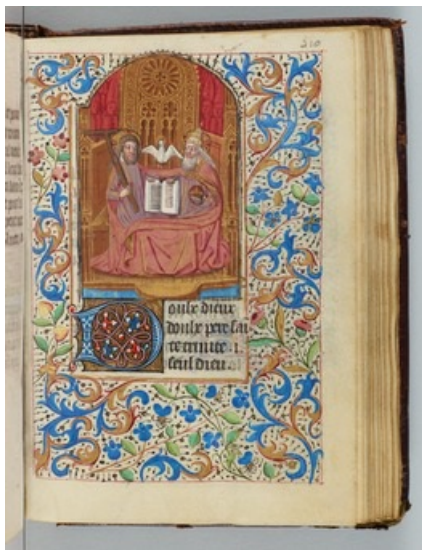 210
oulx dieux
doulx pere sai
te trinite .i.
seul dieu.